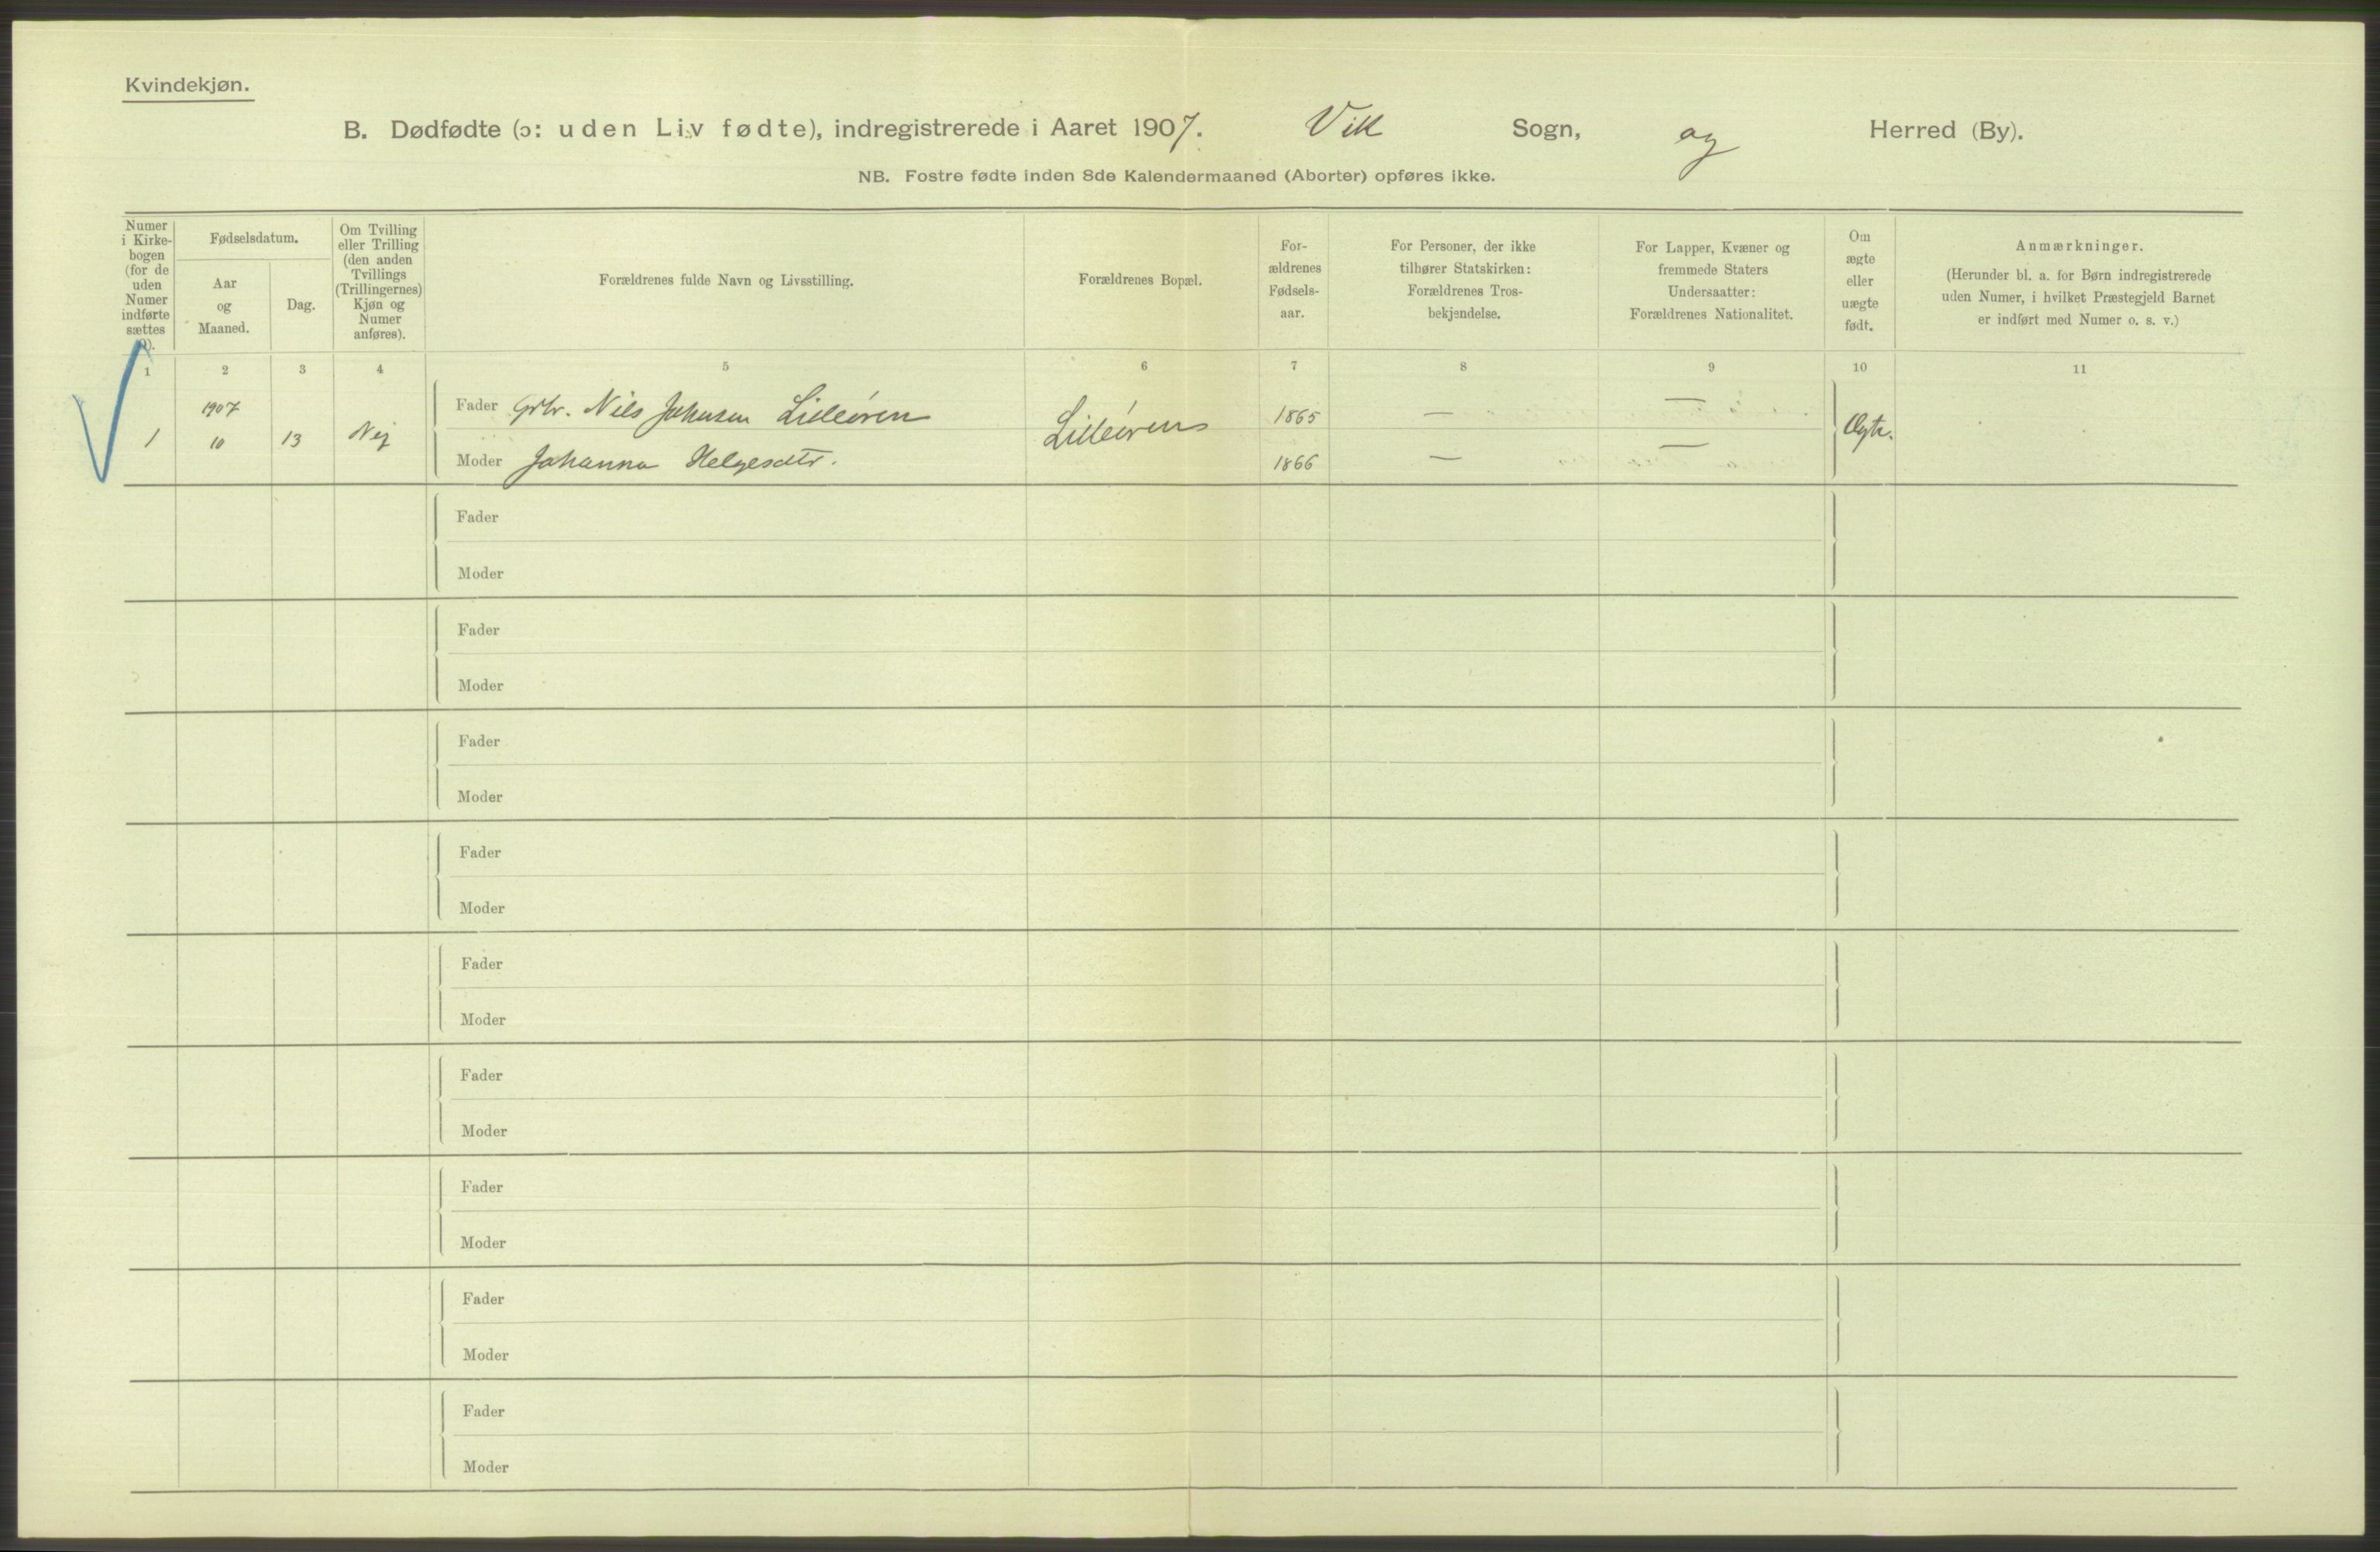 Kvindekjøn.
B. Dødfødte (ɔ: uden Liv fødte), indregistrerede i Aaret 1907. Vik Sogn, og Herred (By).
NB. Fostre fødte inden 8de Kalendermaaned (Aborter) opføres ikke.
Numer
i Kirke-
bogen
(for de
uden
Numer
indførte
sættes
0).
Fødselsdatum.
Aar
og
Maaned.
Dag.
Om Tvilling
eller Trilling
(den anden
Tvillings
(Trillingernes)
Kjøn og
Numer
anføres).
Forældrenes fulde Navn og Livsstilling.
Forældrenes Bopæl.
For-
ældrenes
Fødsels-
aar.
For Personer, der ikke
tilhører Statskirken:
Forældrenes Tros-
bekjendelse.
For Lapper, Kvæner og
fremmede Staters
Undersaatter:
Forældrenes Nationalitet.
Om
ægte
eller
uægte
født.
Anmærkninger.
(Herunder bl. a. for Børn indregistrerede
uden Numer, i hvilket Præstegjeld Barnet
er indført med Numer o. s. v.)
1 2 3 4 5 6 7 8 9 10 11
1907
1 10 13 Nej
Fader Grbr. Nils Johnsen Lilleøren Lilleøren 1865 — —
Moder Johanna Helgesdtr. 1866 — — Ægte.
Fader
Moder
Fader
Moder
Fader
Moder
Fader
Moder
Fader
Moder
Fader
Moder
Fader
Moder
Fader
Moder
Fader
Moder